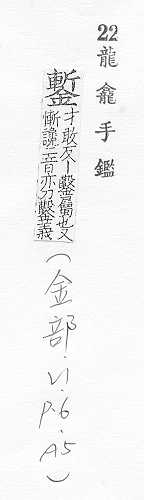 22 龍龕手鑑
鏨
才敢反丨鑿也又
慚讒二音亦鑿義
(金部.V1.P.6.A5)